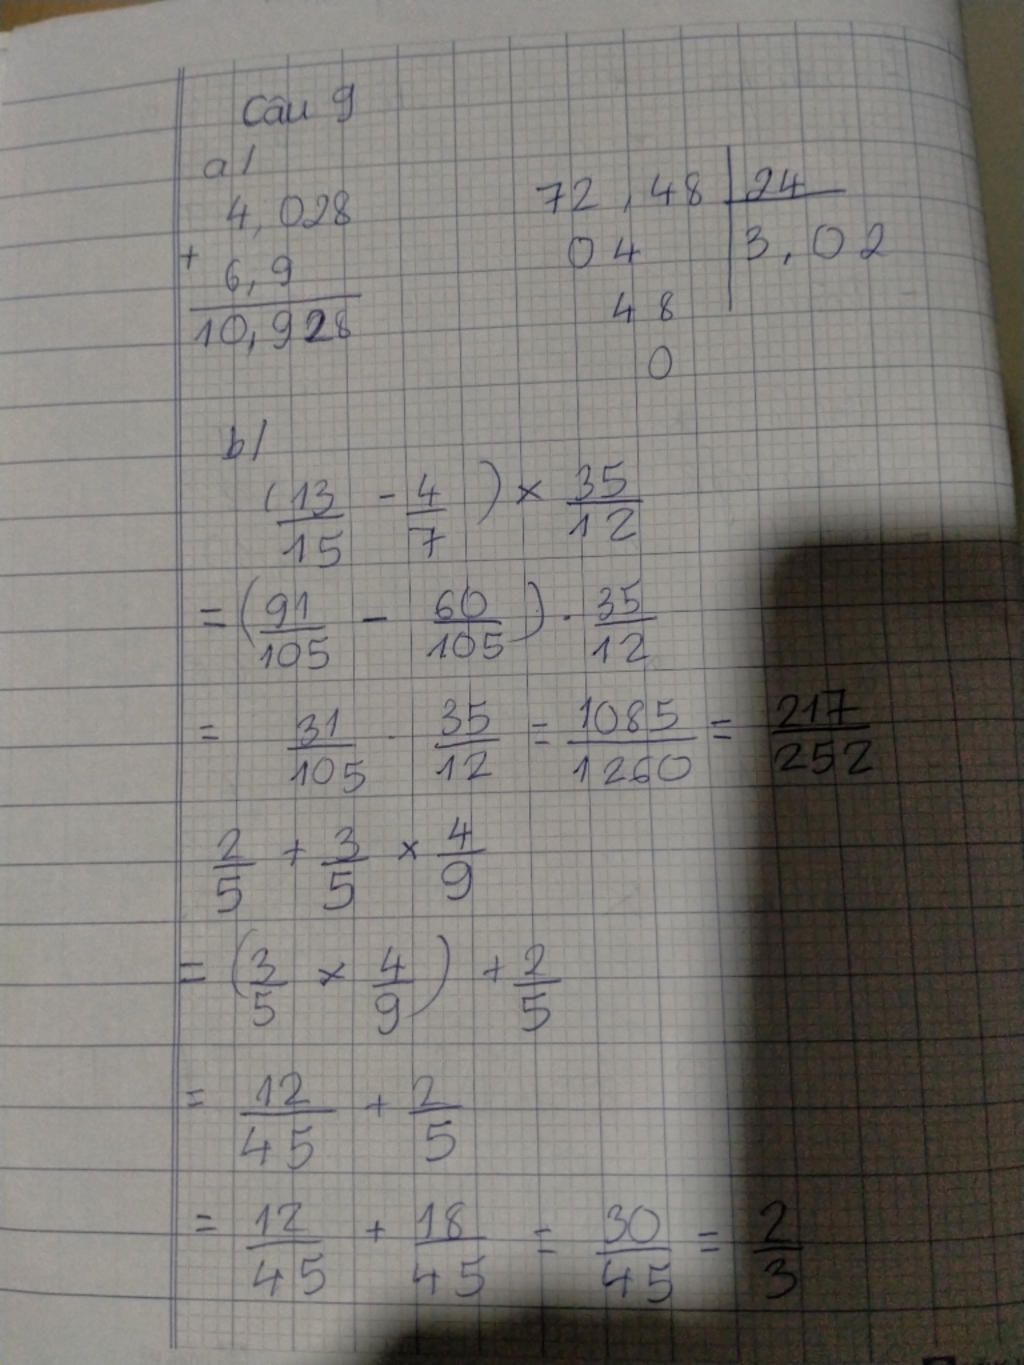 Câu 9
a/
4,028
+
6,9
10,928
72,48 | 24
04 3,02
48
0
b/
(13/15 - 4/7) × 35/12
= (91/105 - 60/105) . 35/12
= 31/105 . 35/12 = 1085/1260 = 217/252
2/5 + 3/5 × 4/9
= (3/5 × 4/9) + 2/5
= 12/45 + 2/5
= 12/45 + 18/45 = 30/45 = 2/3